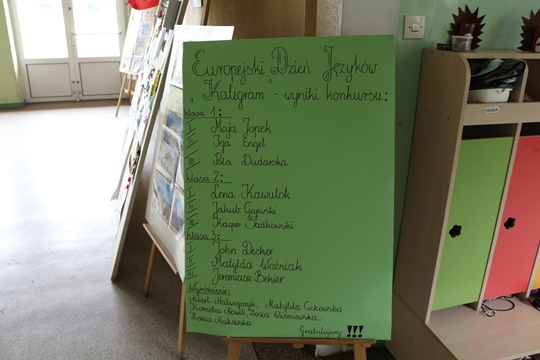 Europejski Dzień Języków
"Kaligram" - wyniki konkursu:
klasa 1:
I Maja Jopek
II Iga Engel
III Pola Dudarska
klasa 2:
I Lena Kawulok
II Jakub
III Kacper
klasa 3:
I John Decker
II Matylda Woźniak
III Jeremiasz Bekier
Wyróżnienie:
Matylda
Kornelia Zosia Wiśniewska,
Hania Makowska
Gratulujemy !!!